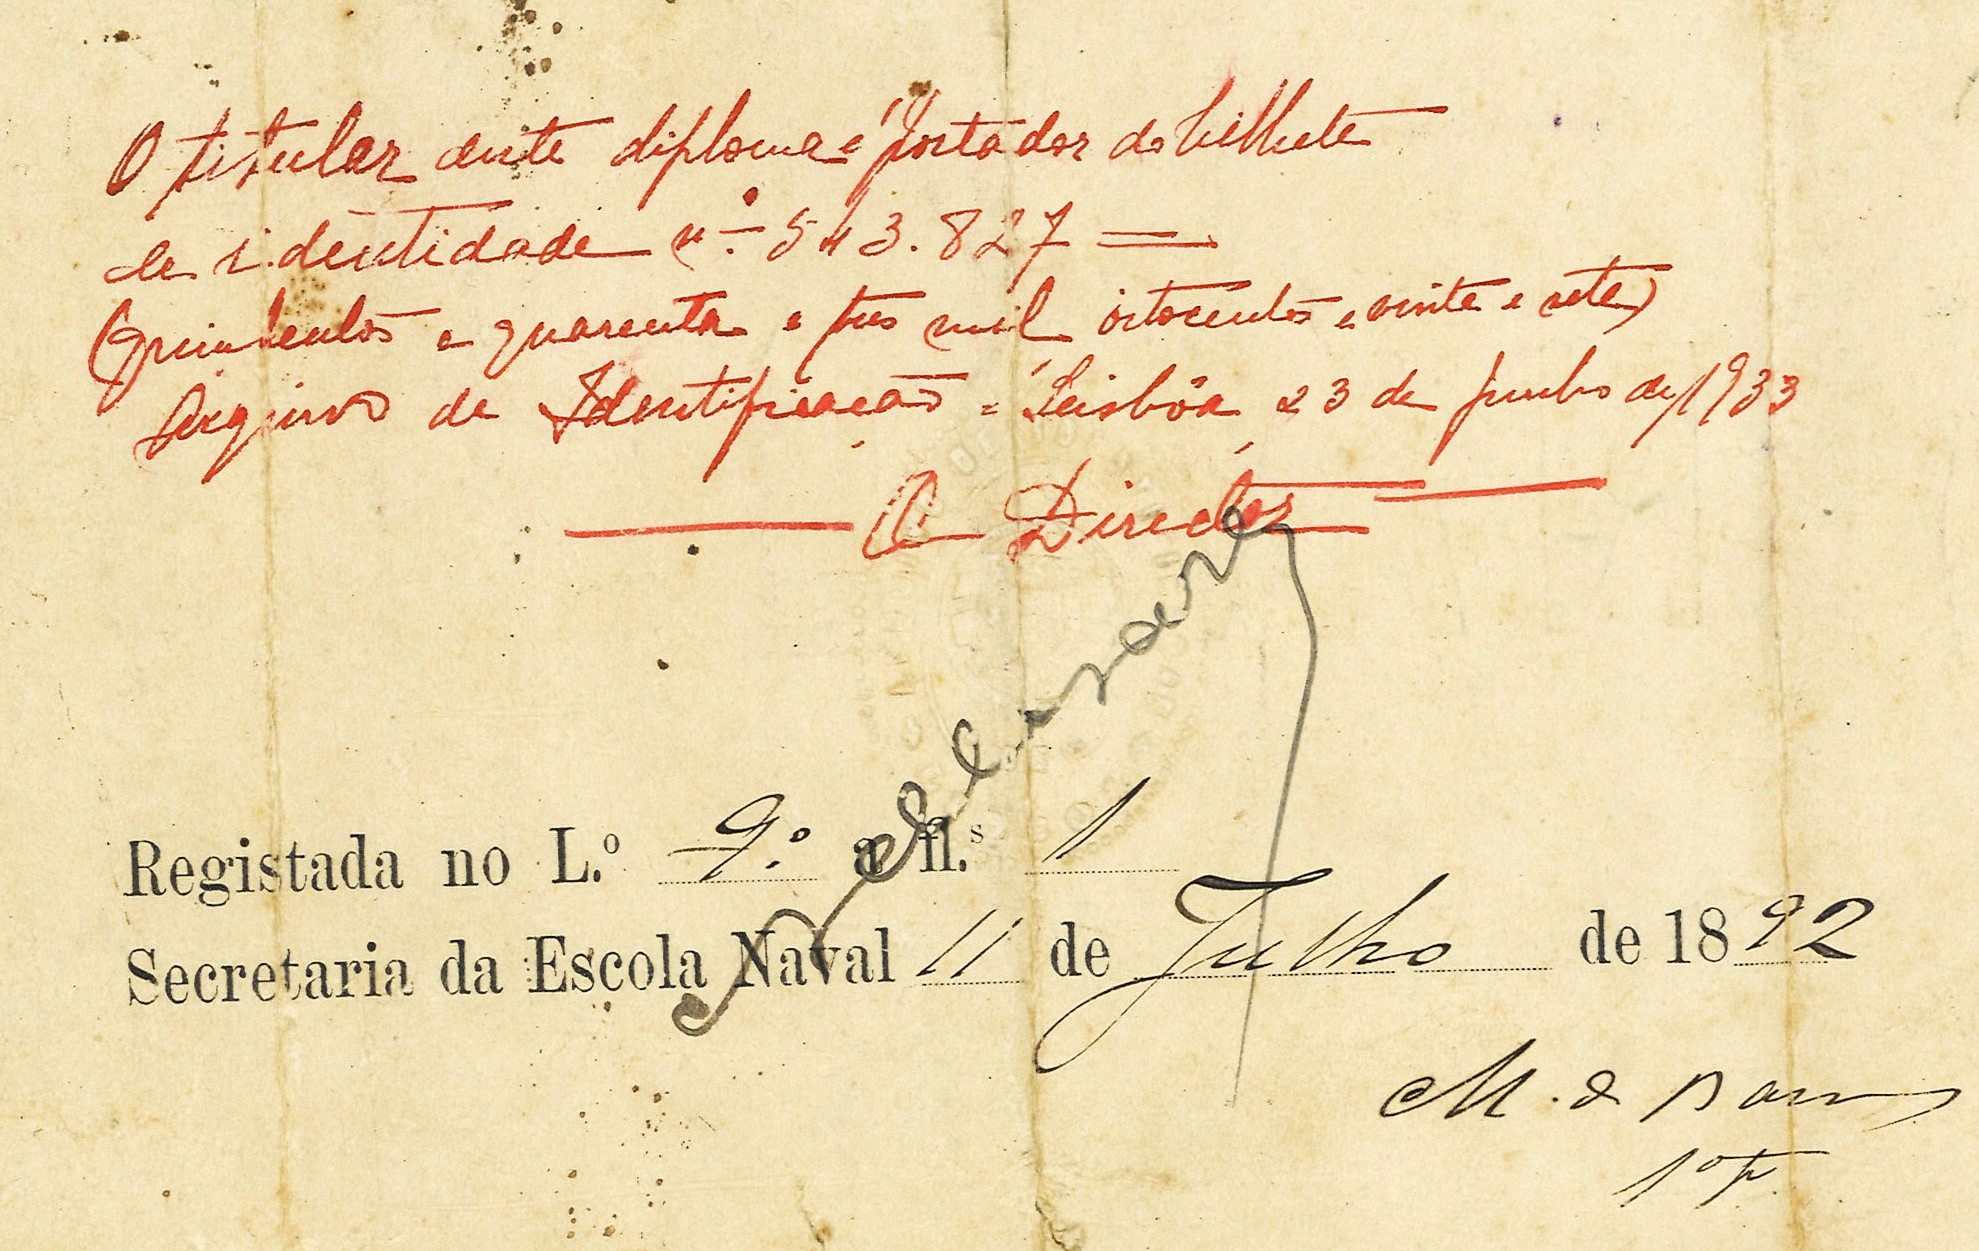 O titular deste diploma é portador do bilhete
de identidade nº 543.827 =
(quinhentos e quarenta e tres mil oitocentos e vinte e sete)
Arquivo de Identificação = Lisbôa 23 de Junho de 1933
O Director
Registada no L.º 9.º a fl.s 1
Secretaria da Escola Naval 11 de Julho de 1892
M. de
1º